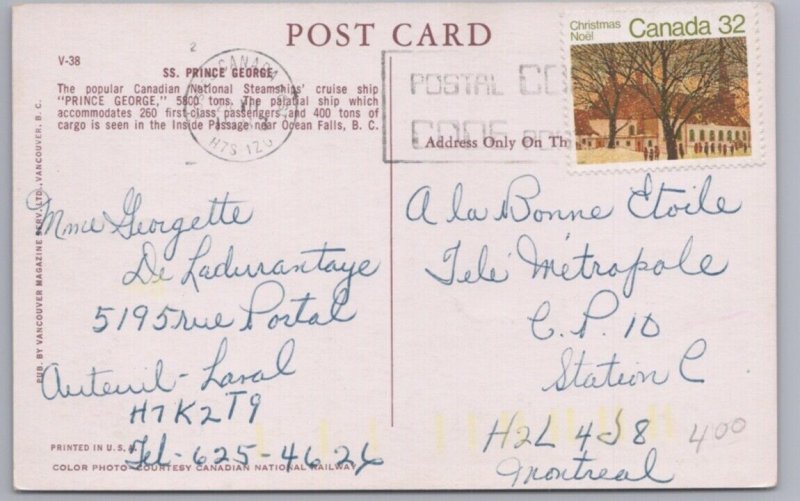 POST CARD
V-38
SS. PRINCE GEORGE
The popular Canadian National Steamships' cruise ship
"PRINCE GEORGE," 5800 tons. The palatial ship which
accommodates 260 first-class passengers and 400 tons of
cargo is seen in the Inside Passage near Ocean Falls, B. C.
PUB. BY VANCOUVER MAGAZINE SERV. LTD., VANCOUVER, B. C.
2
CANADA
H7S 1Z0
POSTAL CO
CODE
Christmas
Noël
Canada 32
Address Only On Th
Mme Georgette
De Ladurantaye
5195 rue Portal
Auteuil - Laval
H7K2T9
Tel- 625-4626
A la Bonne Etoile
Télé Métropole
C.P. 10
Station C
H2L 4J8
Montreal
400
PRINTED IN U.S.A.
COLOR PHOTO COURTESY CANADIAN NATIONAL RAILWAY